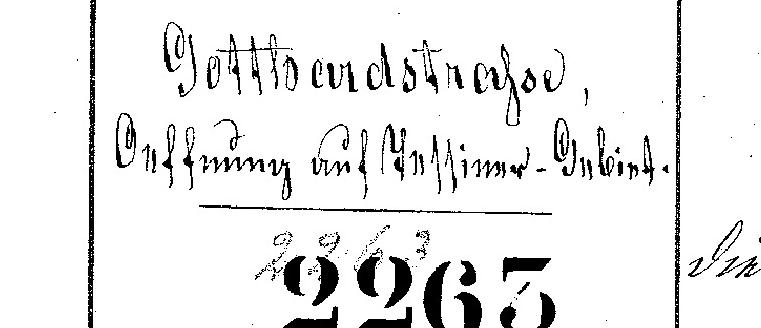 Gotthardstrasse,
Oeffnung auf Tessiner-Gebiet.
2263
2263
Die